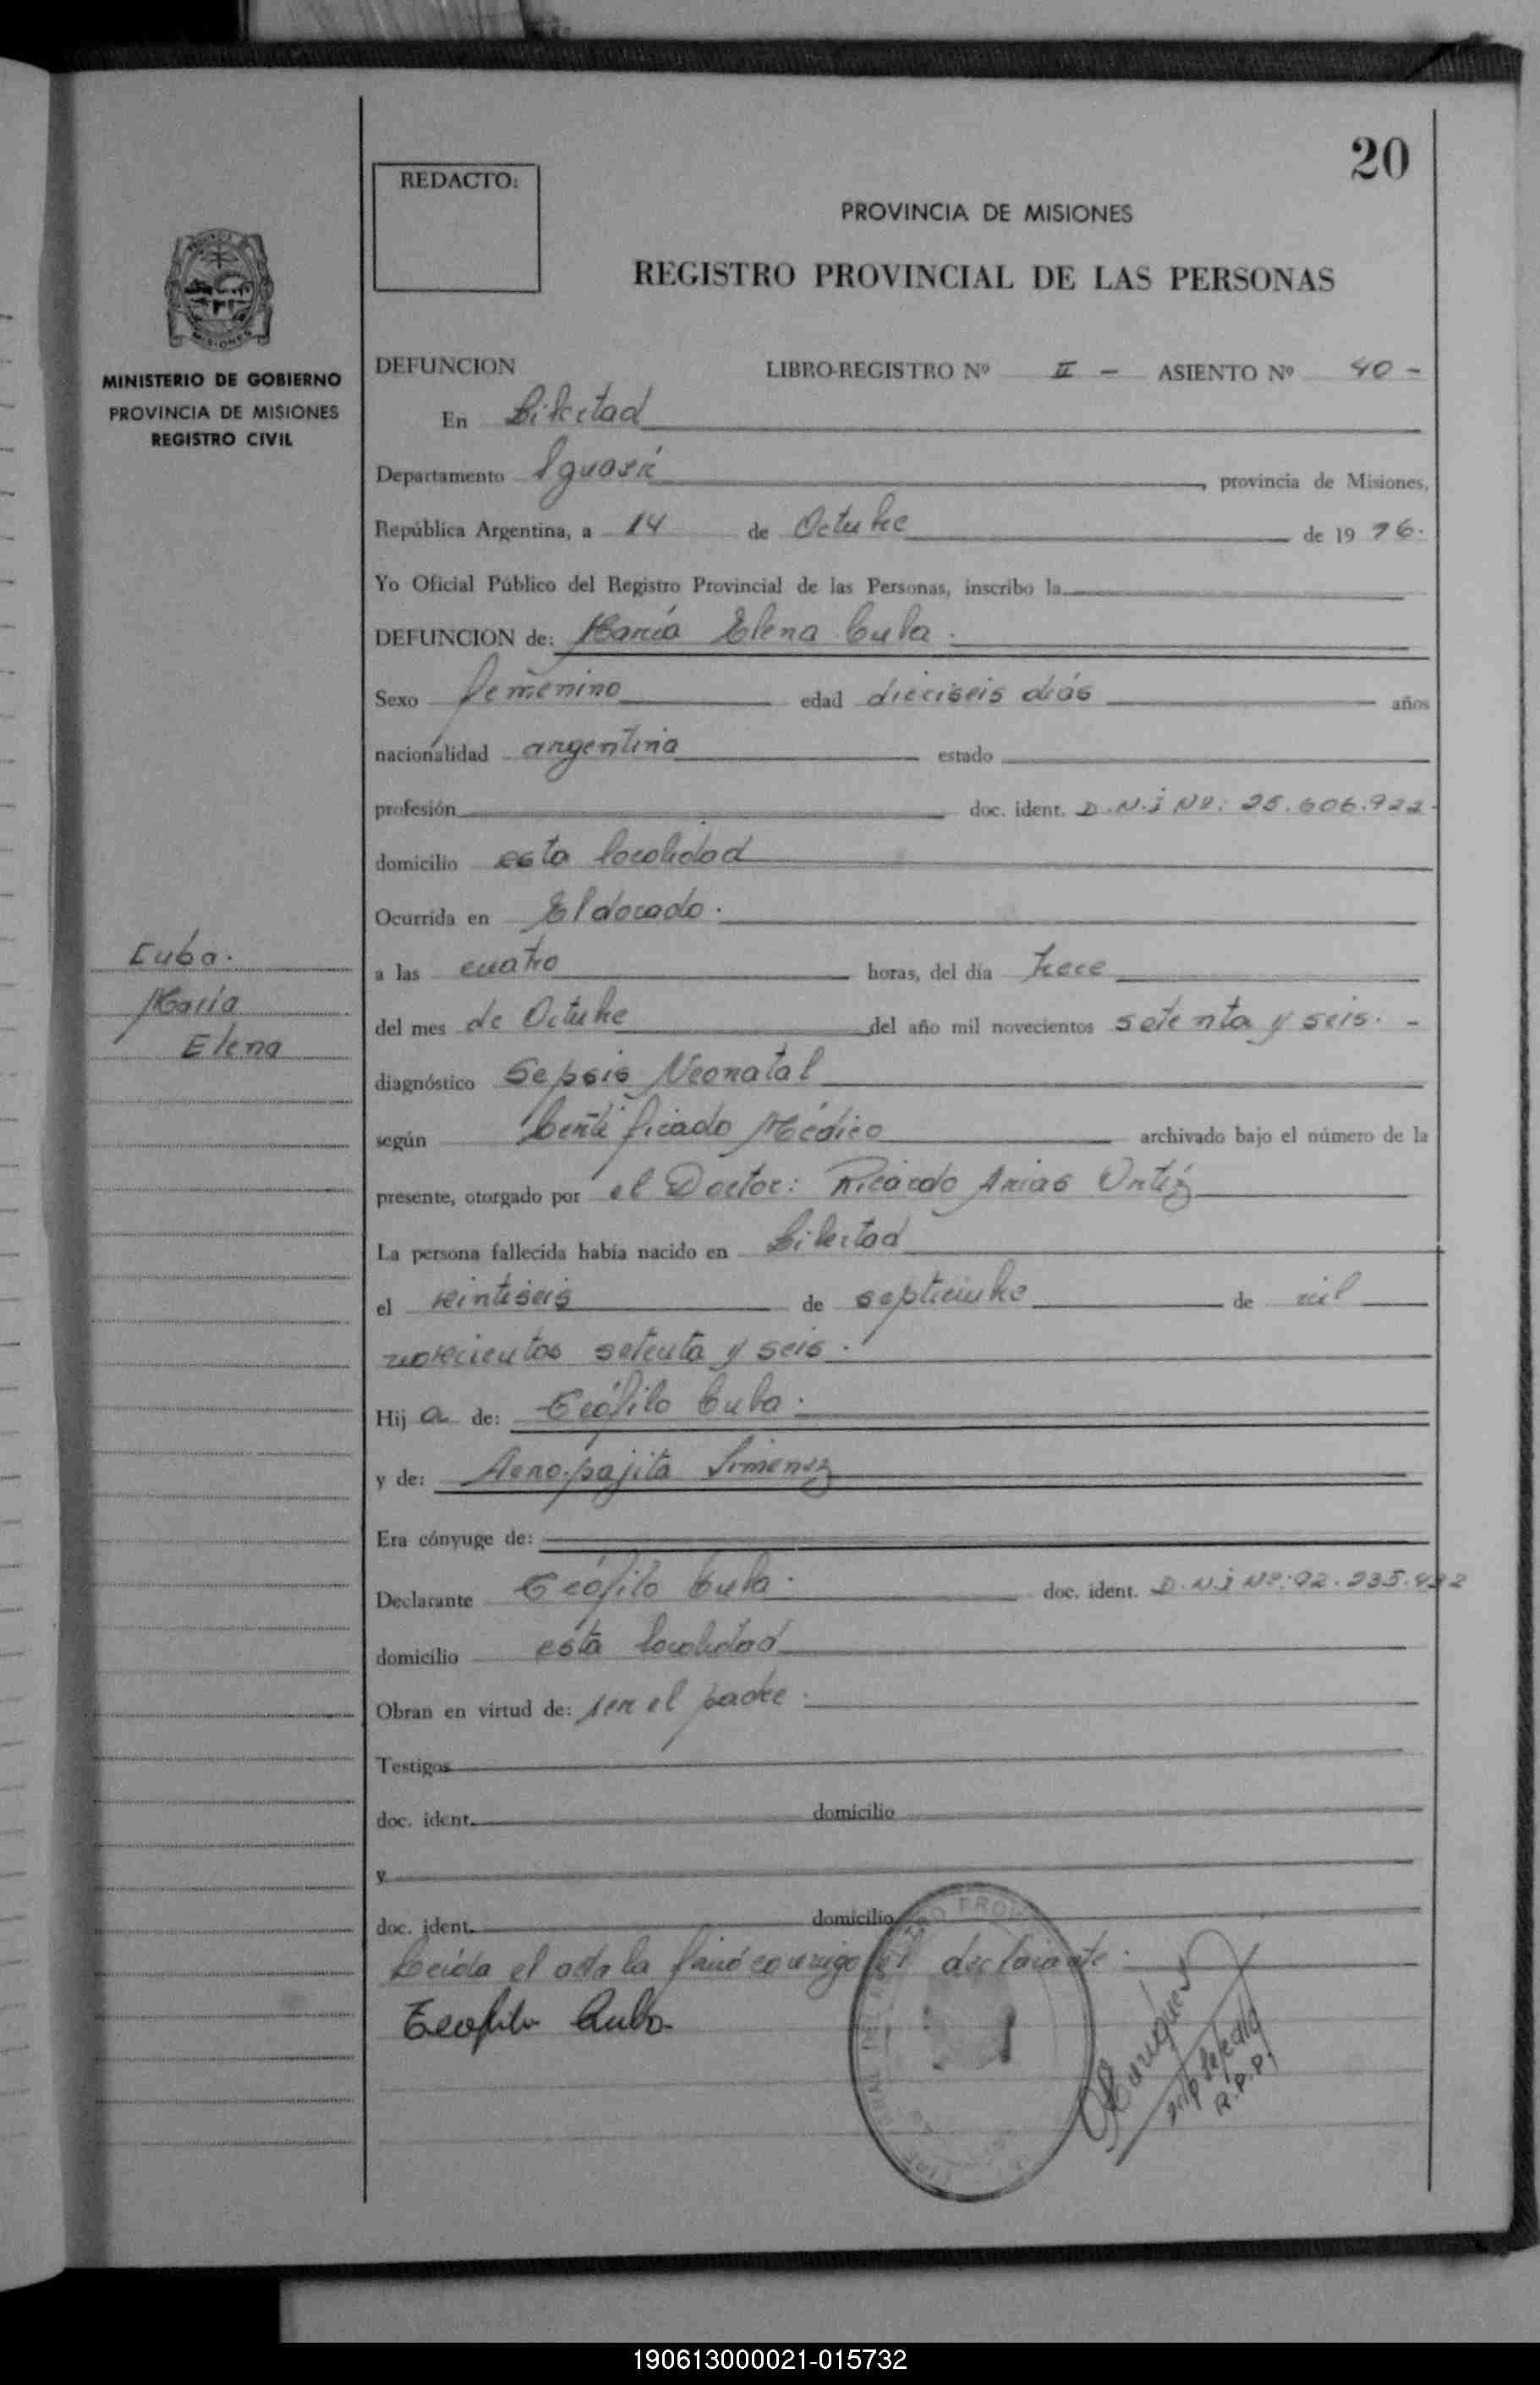 20
REDACTO:
PROVINCIA DE MISIONES
REGISTRO PROVINCIAL DE LAS PERSONAS
MINISTERIO DE GOBIERNO
PROVINCIA DE MISIONES
REGISTRO CIVIL
DEFUNCION LIBRO-REGISTRO Nº II - ASIENTO Nº 40 -
En Libertad
Departamento Iguazú, provincia de Misiones,
República Argentina, a 14 de Octubre de 19 76.
Yo Oficial Público del Registro Provincial de las Personas, inscribo la
DEFUNCION de: María Elena Cuba.
Sexo Femenino edad dieciseis días años
nacionalidad argentina estado
profesión doc. ident. D.N.i Nº: 25.606.922.
domicilio esta localidad
Ocurrida en Eldorado.
Cuba.
María
Elena
a las cuatro horas, del día trece
del mes de Octubre del año mil novecientos setenta y seis. -
diagnóstico Sepsis Neonatal
según Certificado Médico archivado bajo el número de la
presente, otorgado por el Doctor: Ricardo Arias Ortíz
La persona fallecida había nacido en Libertad
el veintiseis de septiembre de mil
novecientos setenta y seis.
Hij a de: Teófilo Cuba.
y de: Aeropajita Simenez
Era cónyuge de:
Declarante Teófilo Cuba. doc. ident. D.N.i Nº: 92.235.432
domicilio esta localidad
Obran en virtud de: ser el padre.
Testigos
doc. ident. domicilio
y
doc. ident. domicilio
Leída el acta la firmó conmigo el declarante.
Teofilo Cuba
R.P.P.
190613000021-015732